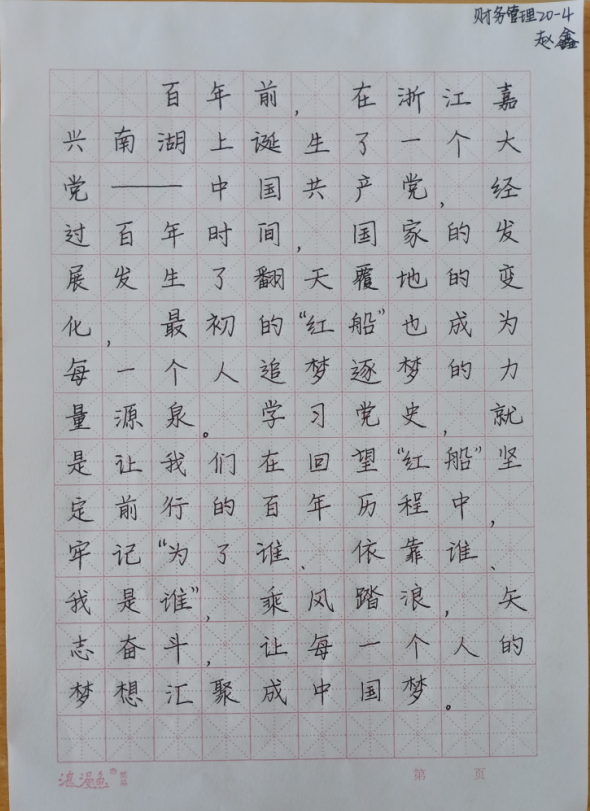 财务管理20-4
赵鑫
百年前，在浙江嘉
兴南湖上诞生了一个大
党——中国共产党，经
过百年时间，国家的发
展发生了翻天覆地的变
化，最初的“红船”也成为
每一个人追梦逐梦的力
量源泉。学习党史，就
是让我们在回望“红船”坚
定前行的百年历程中，
牢记“为了谁、依靠谁、
我是谁”，乘风踏浪，矢
志奋斗，让每一个人的
梦想汇聚成中国梦。
第 页